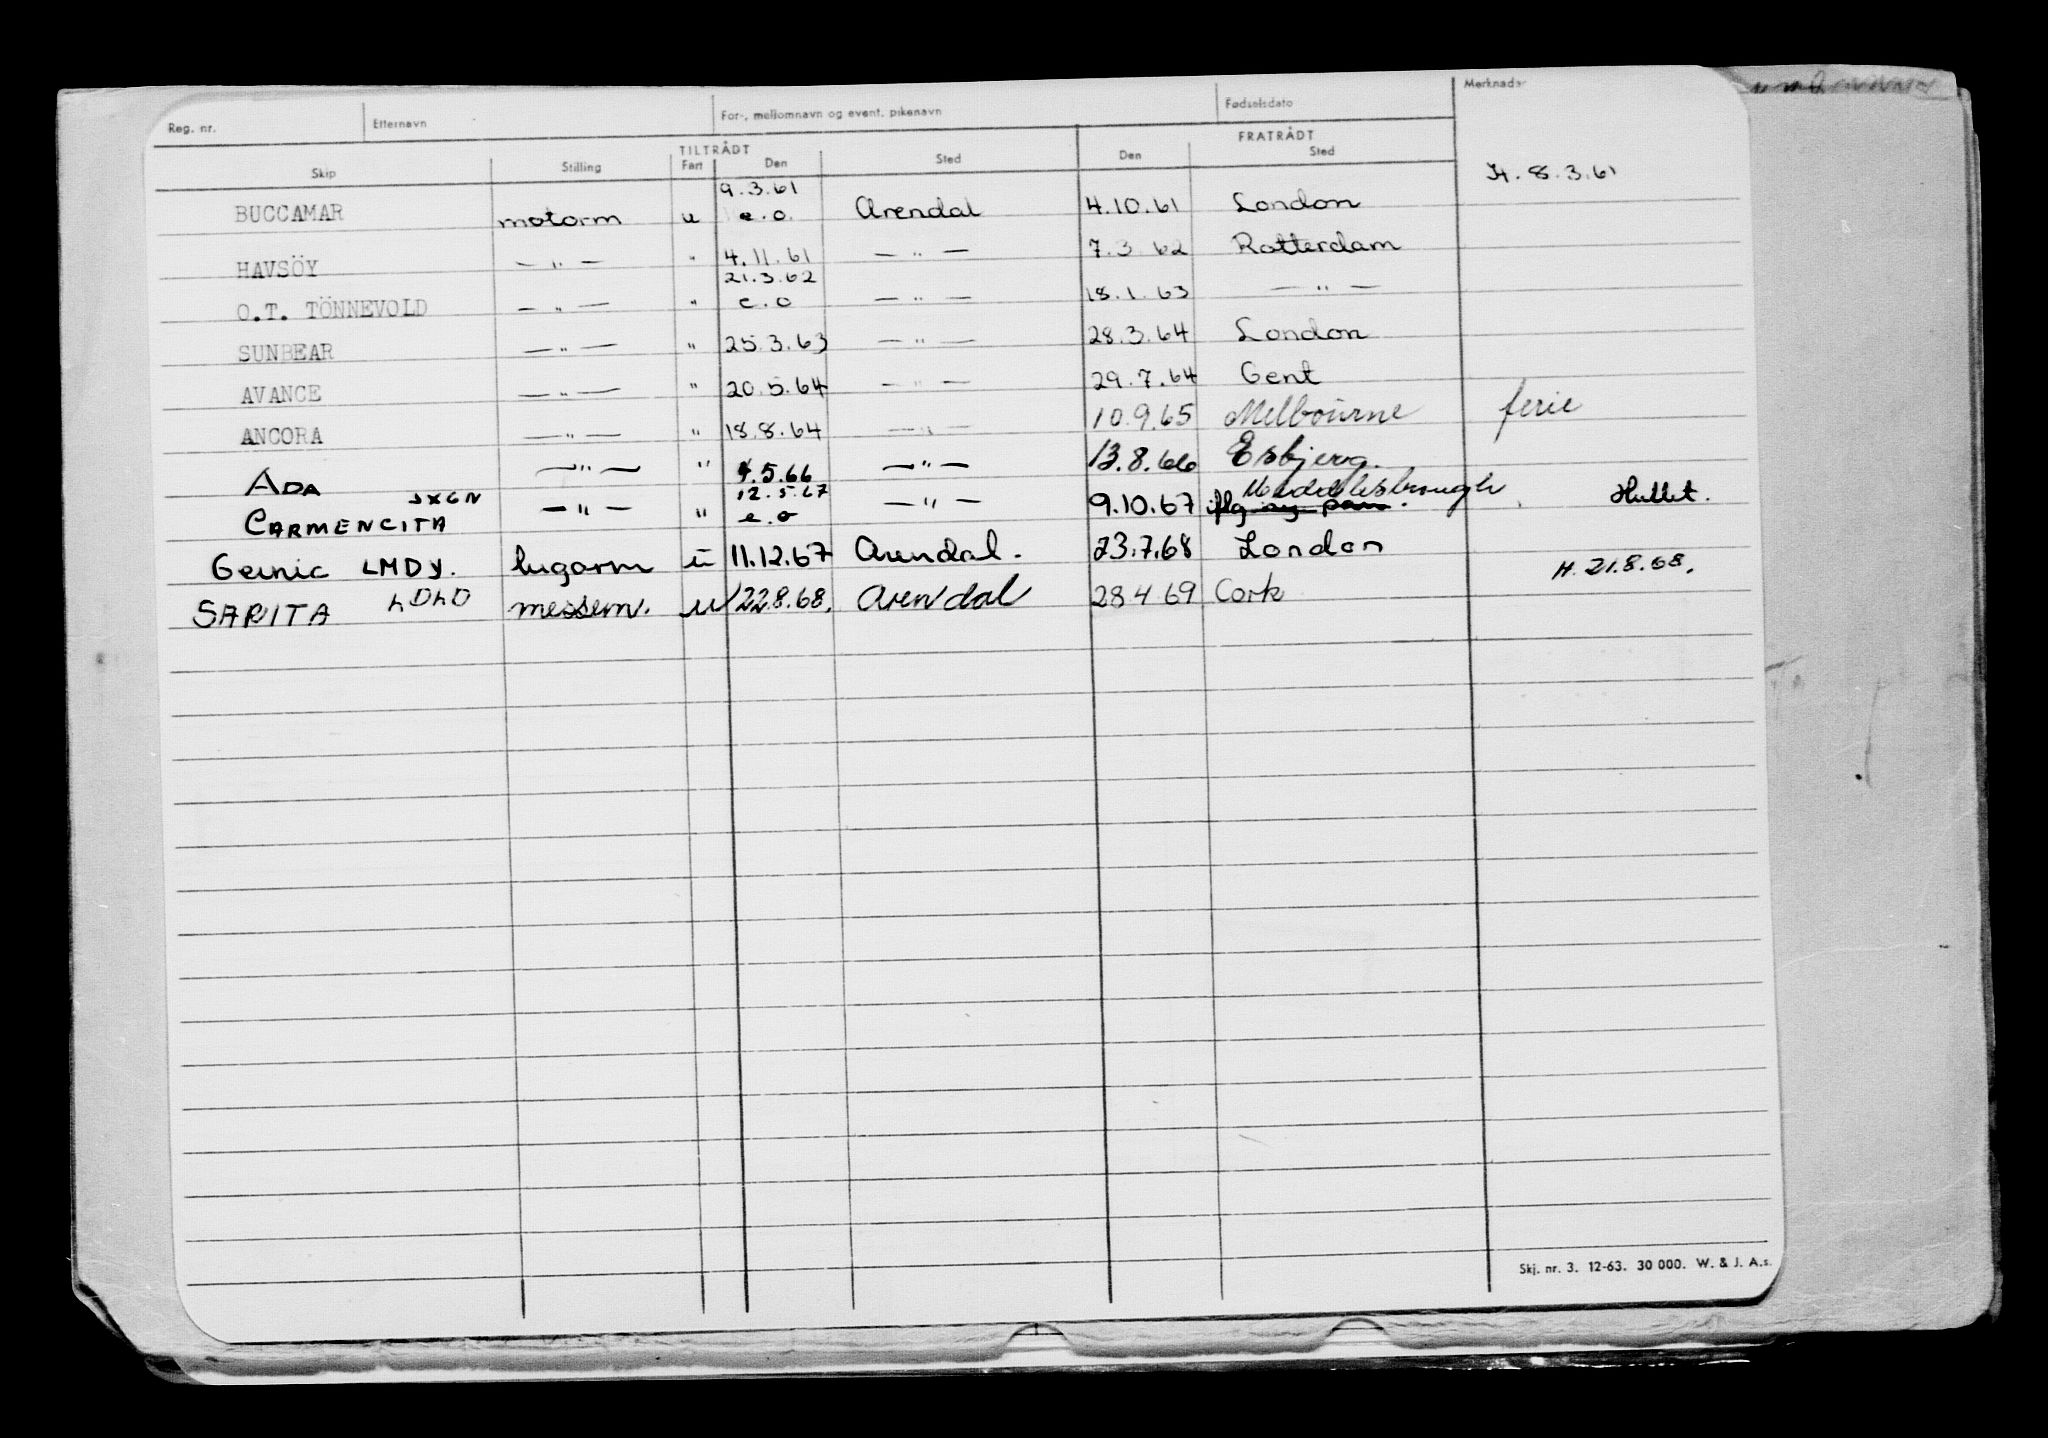 Reg. nr. Etternavn For-, mellomnavn og event. pikenavn Fødselsdato Merknader
TILTRÅDT FRATRÅDT
Skip Stilling Fart Den Sted Den Sted
H. 8.3.61
9.3.61
BUCCAMAR motorm u e.o. Arendal 4.10.61 London
HAVSÖY — " — " 4.11.61 — " — 7.3.62 Rotterdam
21.3.62
O.T. TÖNNEVOLD — " — " e.o — " — 18.1.63 — " —
SUNBEAR — " — " 25.3.63 — " — 28.3.64 London
AVANCE — " — " 20.5.64 — " — 29.7.64 Gent
ANCORA — " — " 18.8.64 — " — 10.9.65 Melbourne ferie
ADA — " — " 4.5.66 — " — 13.8.66 Esbjerg.
12.5.67 Middlesbrough
CARMENCITA JXGN — " — " e.o — " — 9.10.67 iflg Hullet.
Gernic LMDY. lugarm u 11.12.67 Arendal. 23.7.68 London
H. 21.8.68.
SARITA LDLD messem. u 22.8.68. Arendal 28 4 69 Cork
Skj. nr. 3. 12-63. 30 000. W. & J. A.s.